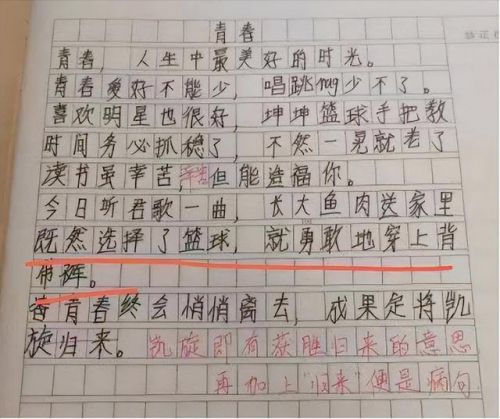 青春
青春，人生中最美好的时光。
青春爱好不能少，唱跳rap少不了。
喜欢明星也很好，坤坤篮球手把教
时间务必抓稳了，不然一晃就老了
读书虽幸苦，辛苦但能造福你。
今日听君歌一曲，长大鱼肉送家里
既然选择了篮球，就勇敢地穿上背
带裤。
青春终会悄悄离去，成果定将凯
旋归来。凯旋即有获胜归来的意思
再加上"归来"便是病句